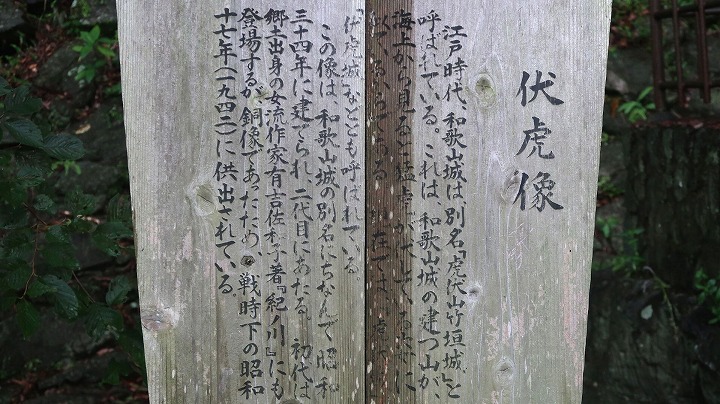 伏虎像
江戸時代、和歌山城は、別名『虎伏山竹垣城』と
呼ばれている。これは、和歌山城の建つ山が、
海上から見ると猛虎が伏している姿に
似ているからである。現在では、虎
伏虎城などとも呼ばれている。
この像は、和歌山城の別名にちなんで昭和
三十四年に建てられ、二代目にあたる。初代は、
郷土出身の女流作家有吉佐和子著『紀ノ川』にも
登場するが銅像であったため、戦時下の昭和
十七年(一九四二)に供出されている。